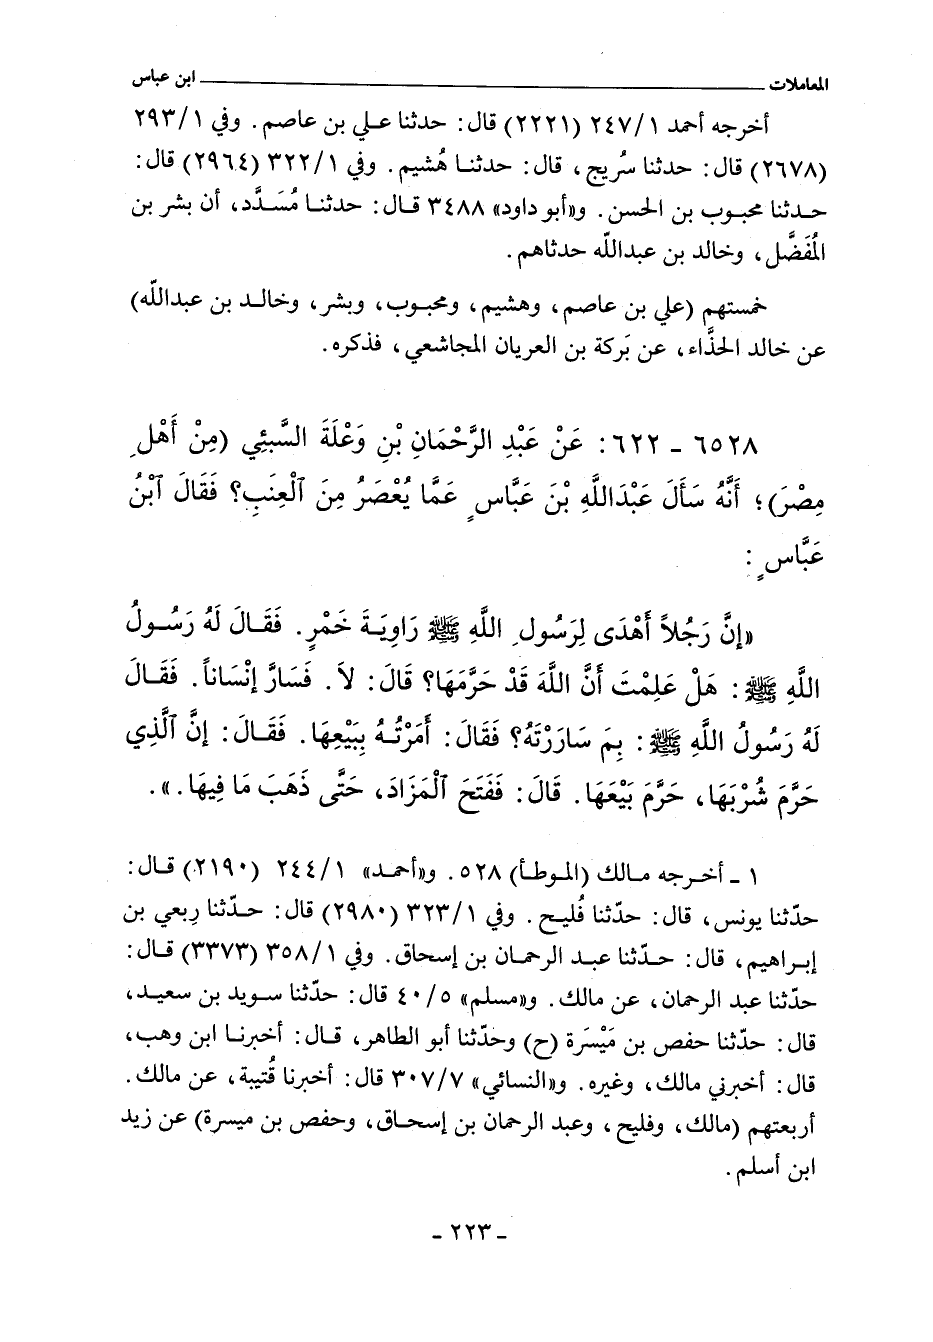 المعاملات ــــــ ابن عباس
أخرجه أحمد ٢٤٧/١ (٢٢٢١) قال: حدثنا علي بن عاصم. وفي ٢٩٣/١
(٢٦٧٨) قال: حدثنا سُريج، قال: حدثنا هُشيم. وفي ٣٢٢/١ (٢٩٦٤) قال:
حدثنا محبوب بن الحسن. و«أبو داود» ٣٤٨٨ قال: حدثنا مُسَدَّد، أن بشر بن
المُفَضَّل، وخالد بن عبدالله حدثاهم.
خمستهم (علي بن عاصم، وهشيم، ومحبوب، وبشر، وخالد بن عبدالله)
عن خالد الحذَّاء، عن بَركة بن العريان المجاشعي، فذكره.
٦٥٢٨ ـ ٦٢٢: عَنْ عَبْدِ الرَّحْمَانِ بْنِ وَعْلَةَ السَّبَئِي (مِنْ أَهْلِ
مِصْرَ)؛ أَنَّهُ سَأَلَ عَبْدَاللَّهِ بْنَ عَبَّاسٍ عَمَّا يُعْصَرُ مِنَ ٱلْعِنَبِ؟ فَقَالَ ٱبْنُ
عَبَّاسٍ:
«إِنَّ رَجُلاً أَهْدَى لِرَسُولِ اللَّهِ ﷺ رَاوِيَةَ خَمْرٍ. فَقَالَ لَهُ رَسُولُ
اللَّهِ ﷺ: هَلْ عَلِمْتَ أَنَّ اللَّهَ قَدْ حَرَّمَهَا؟ قَالَ: لاَ. فَسَارَّ إِنْسَاناً. فَقَالَ
لَهُ رَسُولُ اللَّهِ ﷺ: بِمَ سَارَرْتَهُ؟ فَقَالَ: أَمَرْتُهُ بِبَيْعِهَا. فَقَالَ: إِنَّ ٱلَّذِي
حَرَّمَ شُرْبَهَا، حَرَّمَ بَيْعَهَا. قَالَ: فَفَتَحَ ٱلْمَزَادَ، حَتَّى ذَهَبَ مَا فِيهَا.».
١ ـ أخرجه مالك (الموطأ) ٥٢٨. و«أحمد» ٢٤٤/١ (٢١٩٠) قال:
حدّثنا يونس، قال: حدّثنا فُليح. وفي ٣٢٣/١ (٢٩٨٠) قال: حدّثنا رِبعي بن
إبراهيم، قال: حدّثنا عبد الرحمان بن إسحاق. وفي ٣٥٨/١ (٣٣٧٣) قال:
حدّثنا عبد الرحمان، عن مالك. و«مسلم» ٤٠/٥ قال: حدّثنا سويد بن سعيد،
قال: حدّثنا حفص بن مَيْسَرة (ح) وحدّثنا أبو الطاهر، قال: أخبرنا ابن وهب،
قال: أخبرني مالك، وغيره. و«النسائي» ٣٠٧/٧ قال: أخبرنا قُتيبة، عن مالك.
أربعتهم (مالك، وفليح، وعبد الرحمان بن إسحاق، وحفص بن ميسرة) عن زيد
ابن أسلم.
ـ ٢٢٣ ـ